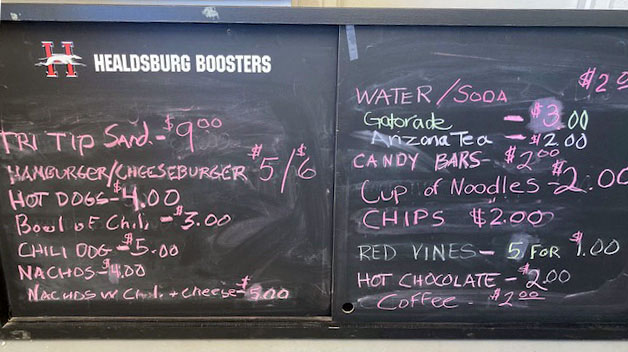 H HEALDSBURG BOOSTERS
TRI TIP SAND. - $9.00
HAMBURGER/CHEESEBURGER $5/$6
HOT DOGS - $4.00
Bowl of Chili - $3.00
CHILI DOG - $5.00
NACHOS - $4.00
NACHOS W Chili + Cheese - $5.00
WATER/SODA
Gatorade - $3.00
Arizona Tea - $2.00
CANDY BARS - $2.00
Cup of Noodles - $2.00
CHIPS $2.00
RED VINES - 5 FOR $1.00
HOT CHOCOLATE - $2.00
Coffee - $2.00